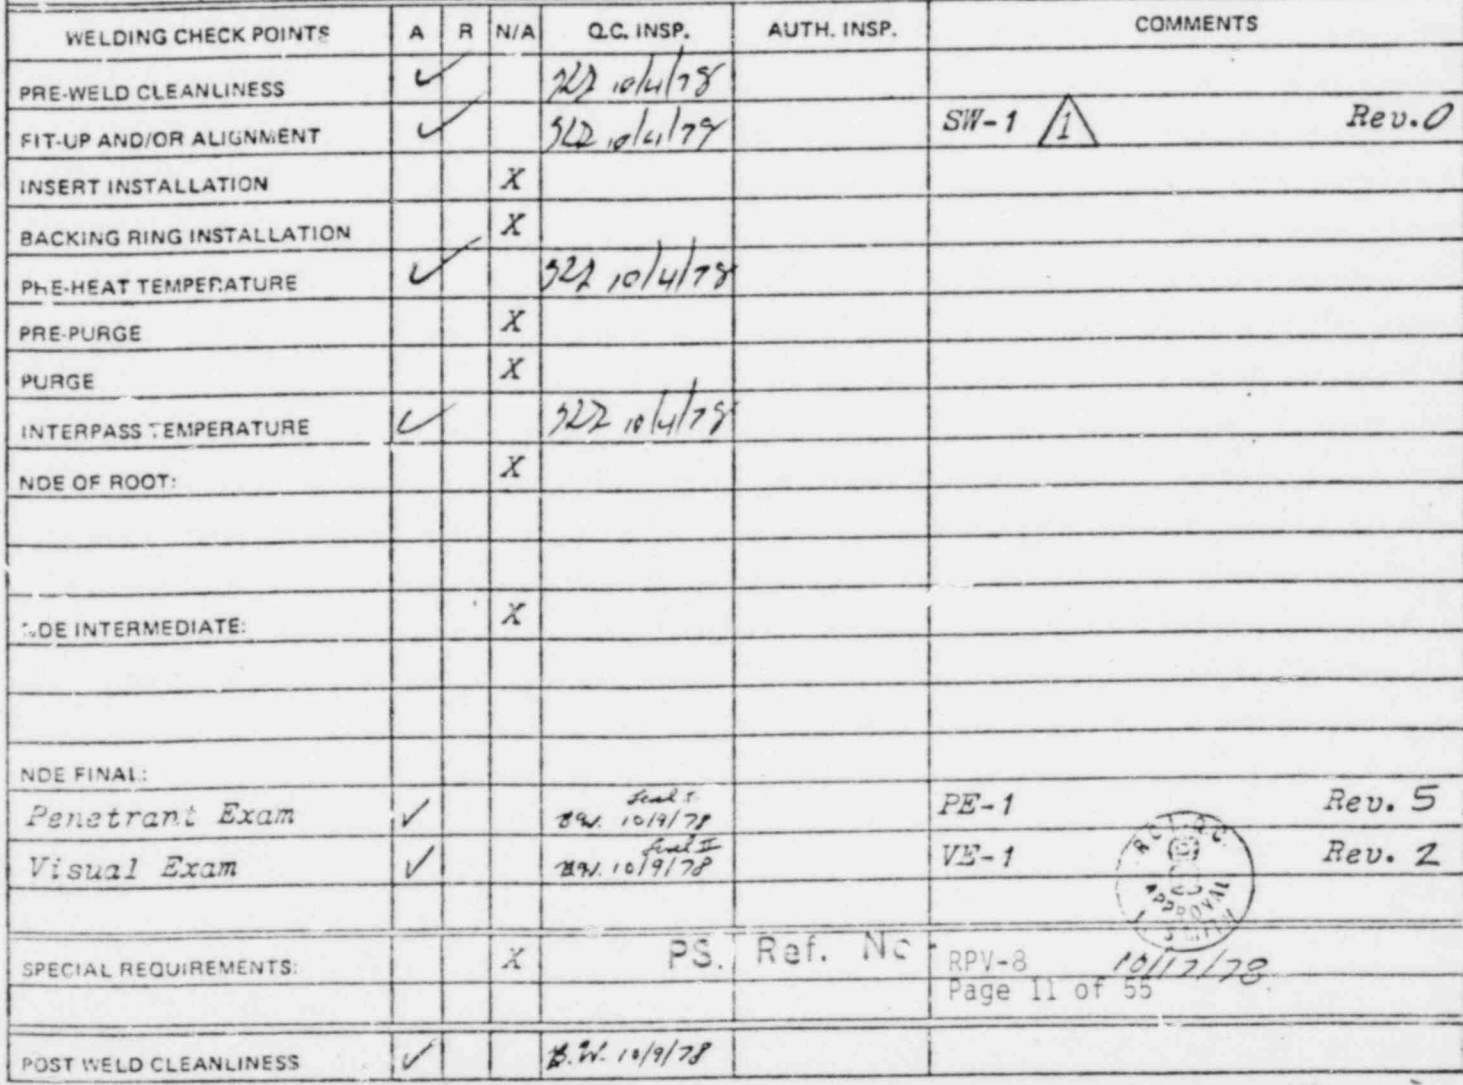 WELDING CHECK POINTS A R N/A Q.C. INSP. AUTH. INSP. COMMENTS
PRE-WELD CLEANLINESS ✓ 10/4/78
FIT-UP AND/OR ALIGNMENT ✓ 10/4/78 SW-1 1 Rev. 0
INSERT INSTALLATION X
BACKING RING INSTALLATION X
PRE-HEAT TEMPERATURE ✓ 10/4/78
PRE-PURGE X
PURGE X
INTERPASS TEMPERATURE ✓ 10/4/78
NDE OF ROOT: X
NDE INTERMEDIATE: X
NDE FINAL:
Penetrant Exam ✓ B.W. 10/9/78 PE-1 Rev. 5
Visual Exam ✓ B.W. 10/9/78 VE-1 Rev. 2
APPROVAL
SPECIAL REQUIREMENTS: X PS. Ref. No. RPV-8 10/17/78
Page 11 of 55
POST WELD CLEANLINESS ✓ B.W. 10/9/78